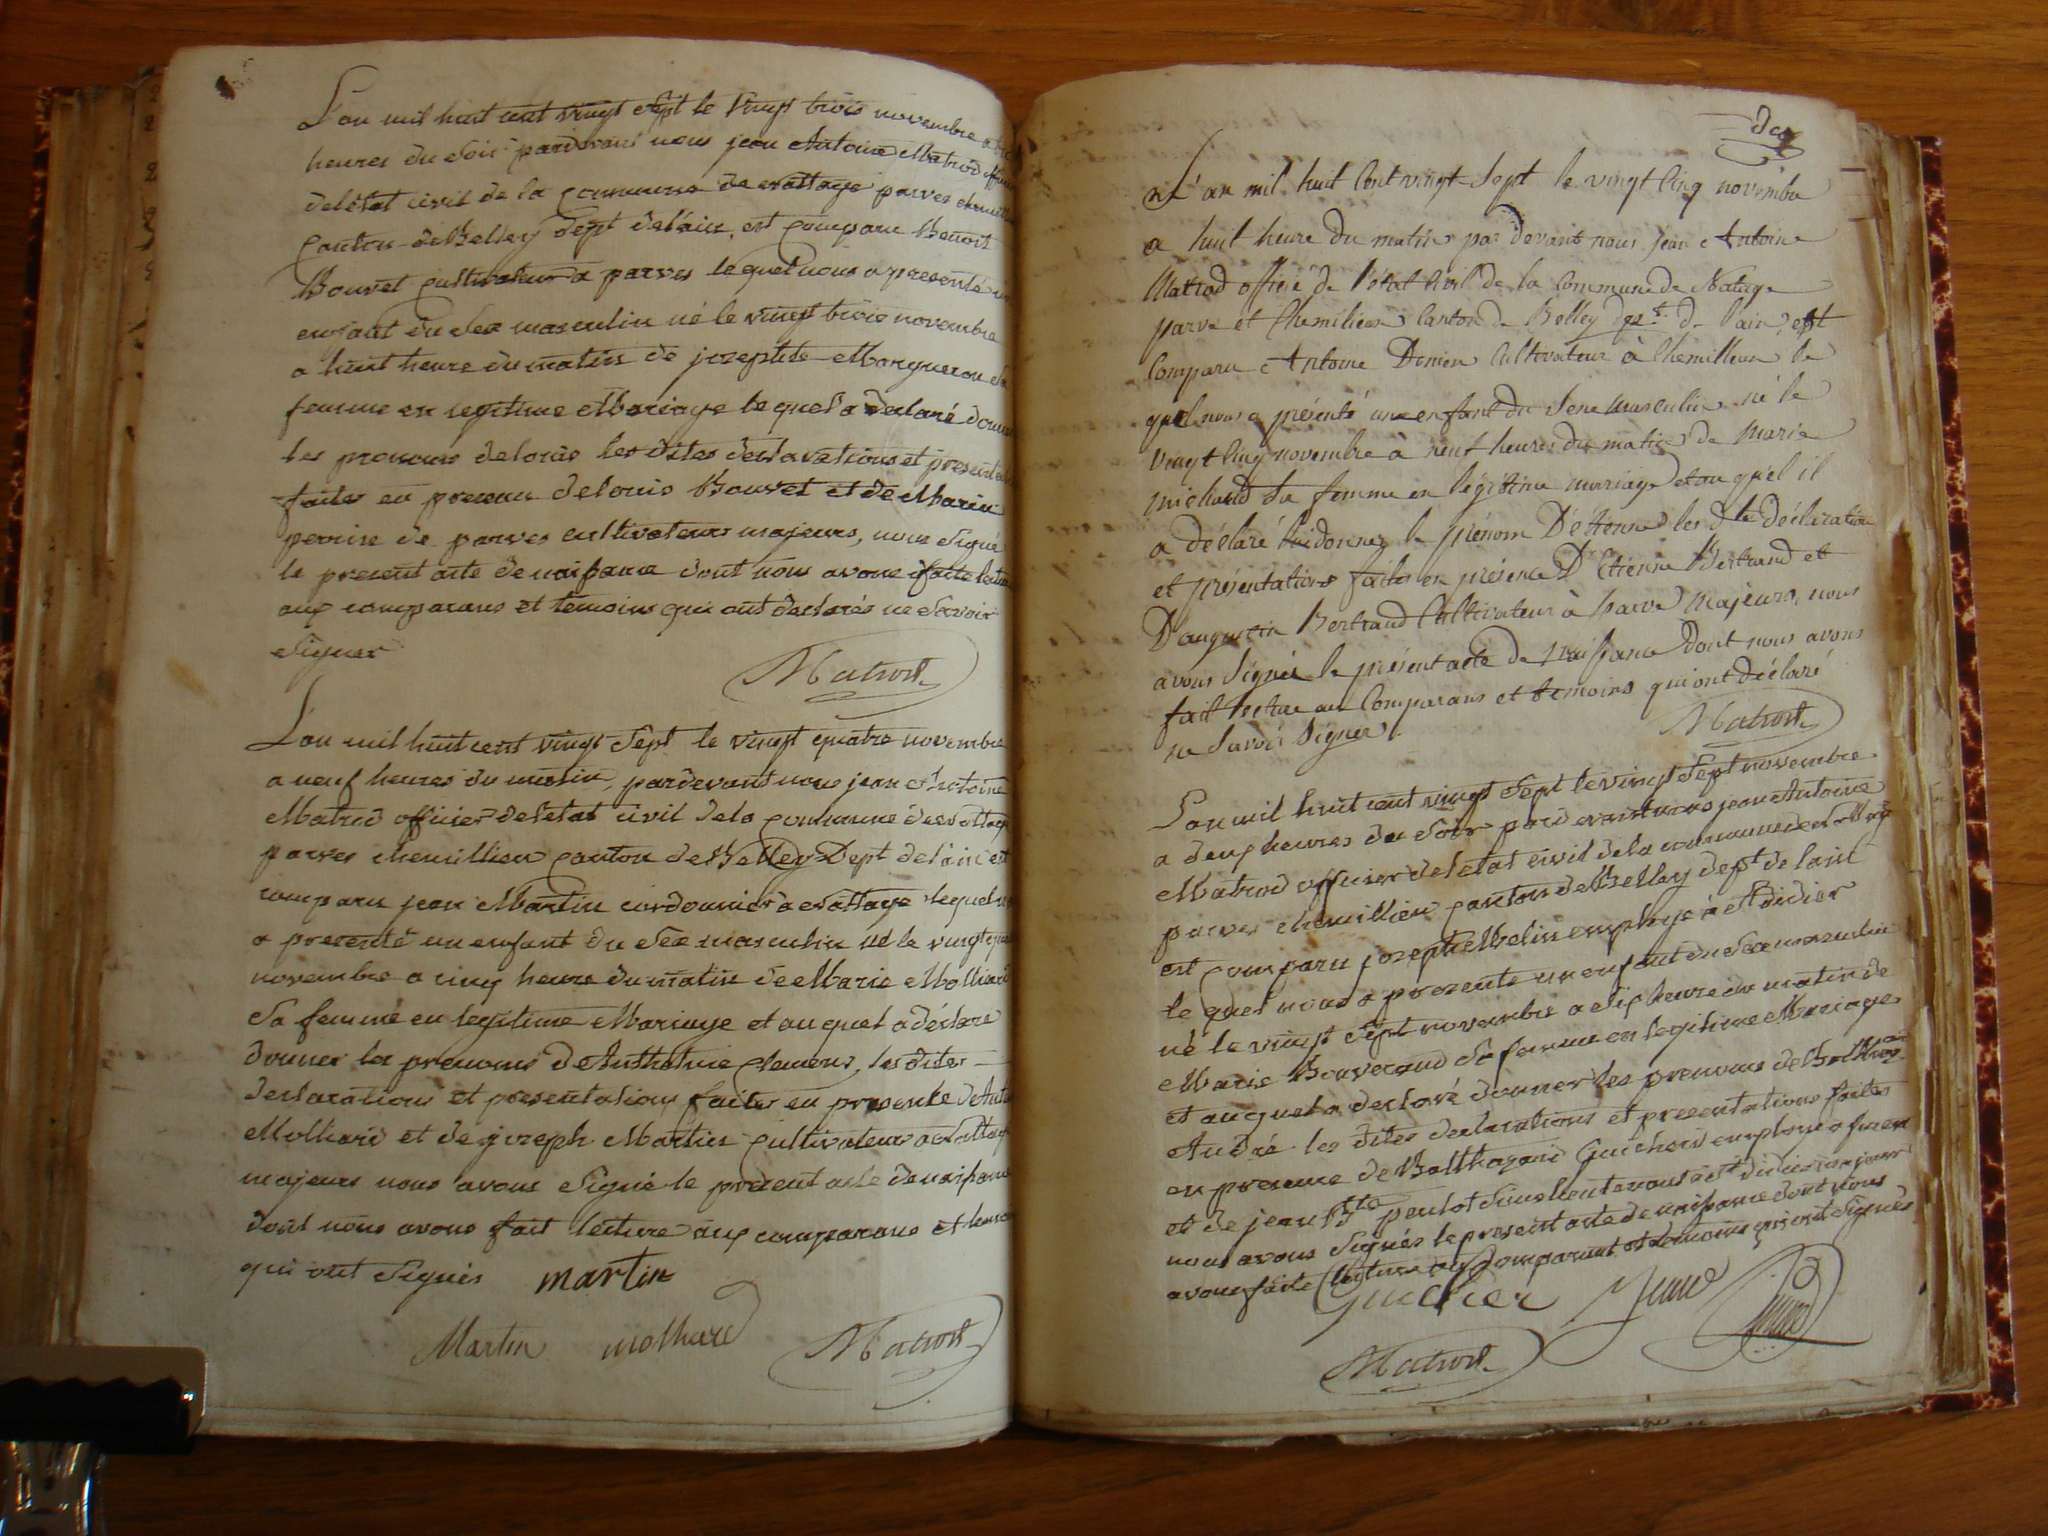 L'an mil huit cent vingt sept le vingt trois novembre a
heures du soir pardevant nous jean Antoine Matrod
de l'état civil de la commune de nattage parves
canton de Belley dept de l'ain, est comparu Benoit
Bouvet cultivateur a parves lequel nous a presenté
enfant du sex masculin né le vingt trois novembre
a huit heure du matin de jozephte Marguerou sa
femme en legitime Mariage le quel a declaré donner
les prenoms de louis les dites declarations et
faites en presence de louis Bouvet et de Marin
perrin de parves cultivateurs majeurs, nous signé
le present acte de naissance dont nous avons faite
aux comparans et temoins qui ont declarés ne savoir
signer
Matrod
L'an mil huit cent vingt sept le vingt quatre novembre
a neuf heures du matin, pardevant nous jean Antoine
Matrod officier de l'etat civil de la commune de nattage
parves chemillieu canton de Belley Dept de l'ain est
comparu jean Martin cordonnier a nattage lequel
a presenté un enfant du sex masculin né le vingt
novembre a cinq heure du matin de Marie Molliard
sa femme en legitime Mariage et au quel a déclaré
donner les prenoms d'Anthelme Clemens, les dites
declarations et presentations faites en presence
Molliard et de jozeph Martin cultivateurs a nattage
majeurs nous avons signé le present acte de naissance
dont nous avons fait lecture aux comparans et
qui ont signés martin
Martin molliard Matrod
L'an mil huit Cent vingt sept le vingt cinq novembre
a huit heure du matin par devant nous jean Antoine
Matrod officié de l'état Civil de la Commune de Natage
parve et Chemilieu Canton de Belley dept. de l'ain, est
Comparu Antoine Demieu Cultivateur à Chemillieu le
quel nous a présenté un enfant du sexe masculin né le
vingt cinq novembre à neuf heures du matin de Marie
michaud sa femme en légitime mariage et au quel il
a déclaré lui donner le prénom D'étienne les dte déclaration
et présentations faites en présence D'Etienne Bertrand et
D'augustin Bertrand Cultivateur à parve majeurs, nous
avons signée le présent acte de naissance dont nous avons
fait lecture au Comparans et temoins qui ont déclaré
ne savoir signée
Matrod
L'an mil huit cent vingt sept le vingt sept novembre
a deux heures du soir pardevant nous jean Antoine
Matrod officier de l'etat civil de la commune de nattage
parves chemillieu canton de Belley dept de l'ain
est comparu jozeph Melin employé a st didier
le quel nous a presenté un enfant du sex masculin
né le vingt sept novembre a six heure du matin de
Marie Bouverand sa femme en legitime Mariage
et auquel a declaré donner les prenoms de
André les dites declarations et presentations faites
en presence de Balthazard Guicherd employé a
et de jean Bte sous lieutenant a st didier majeurs
nous avons signés le present acte de naissance dont nous
avons faite lecture aux comparant et temoins qui ont signés
Matrod